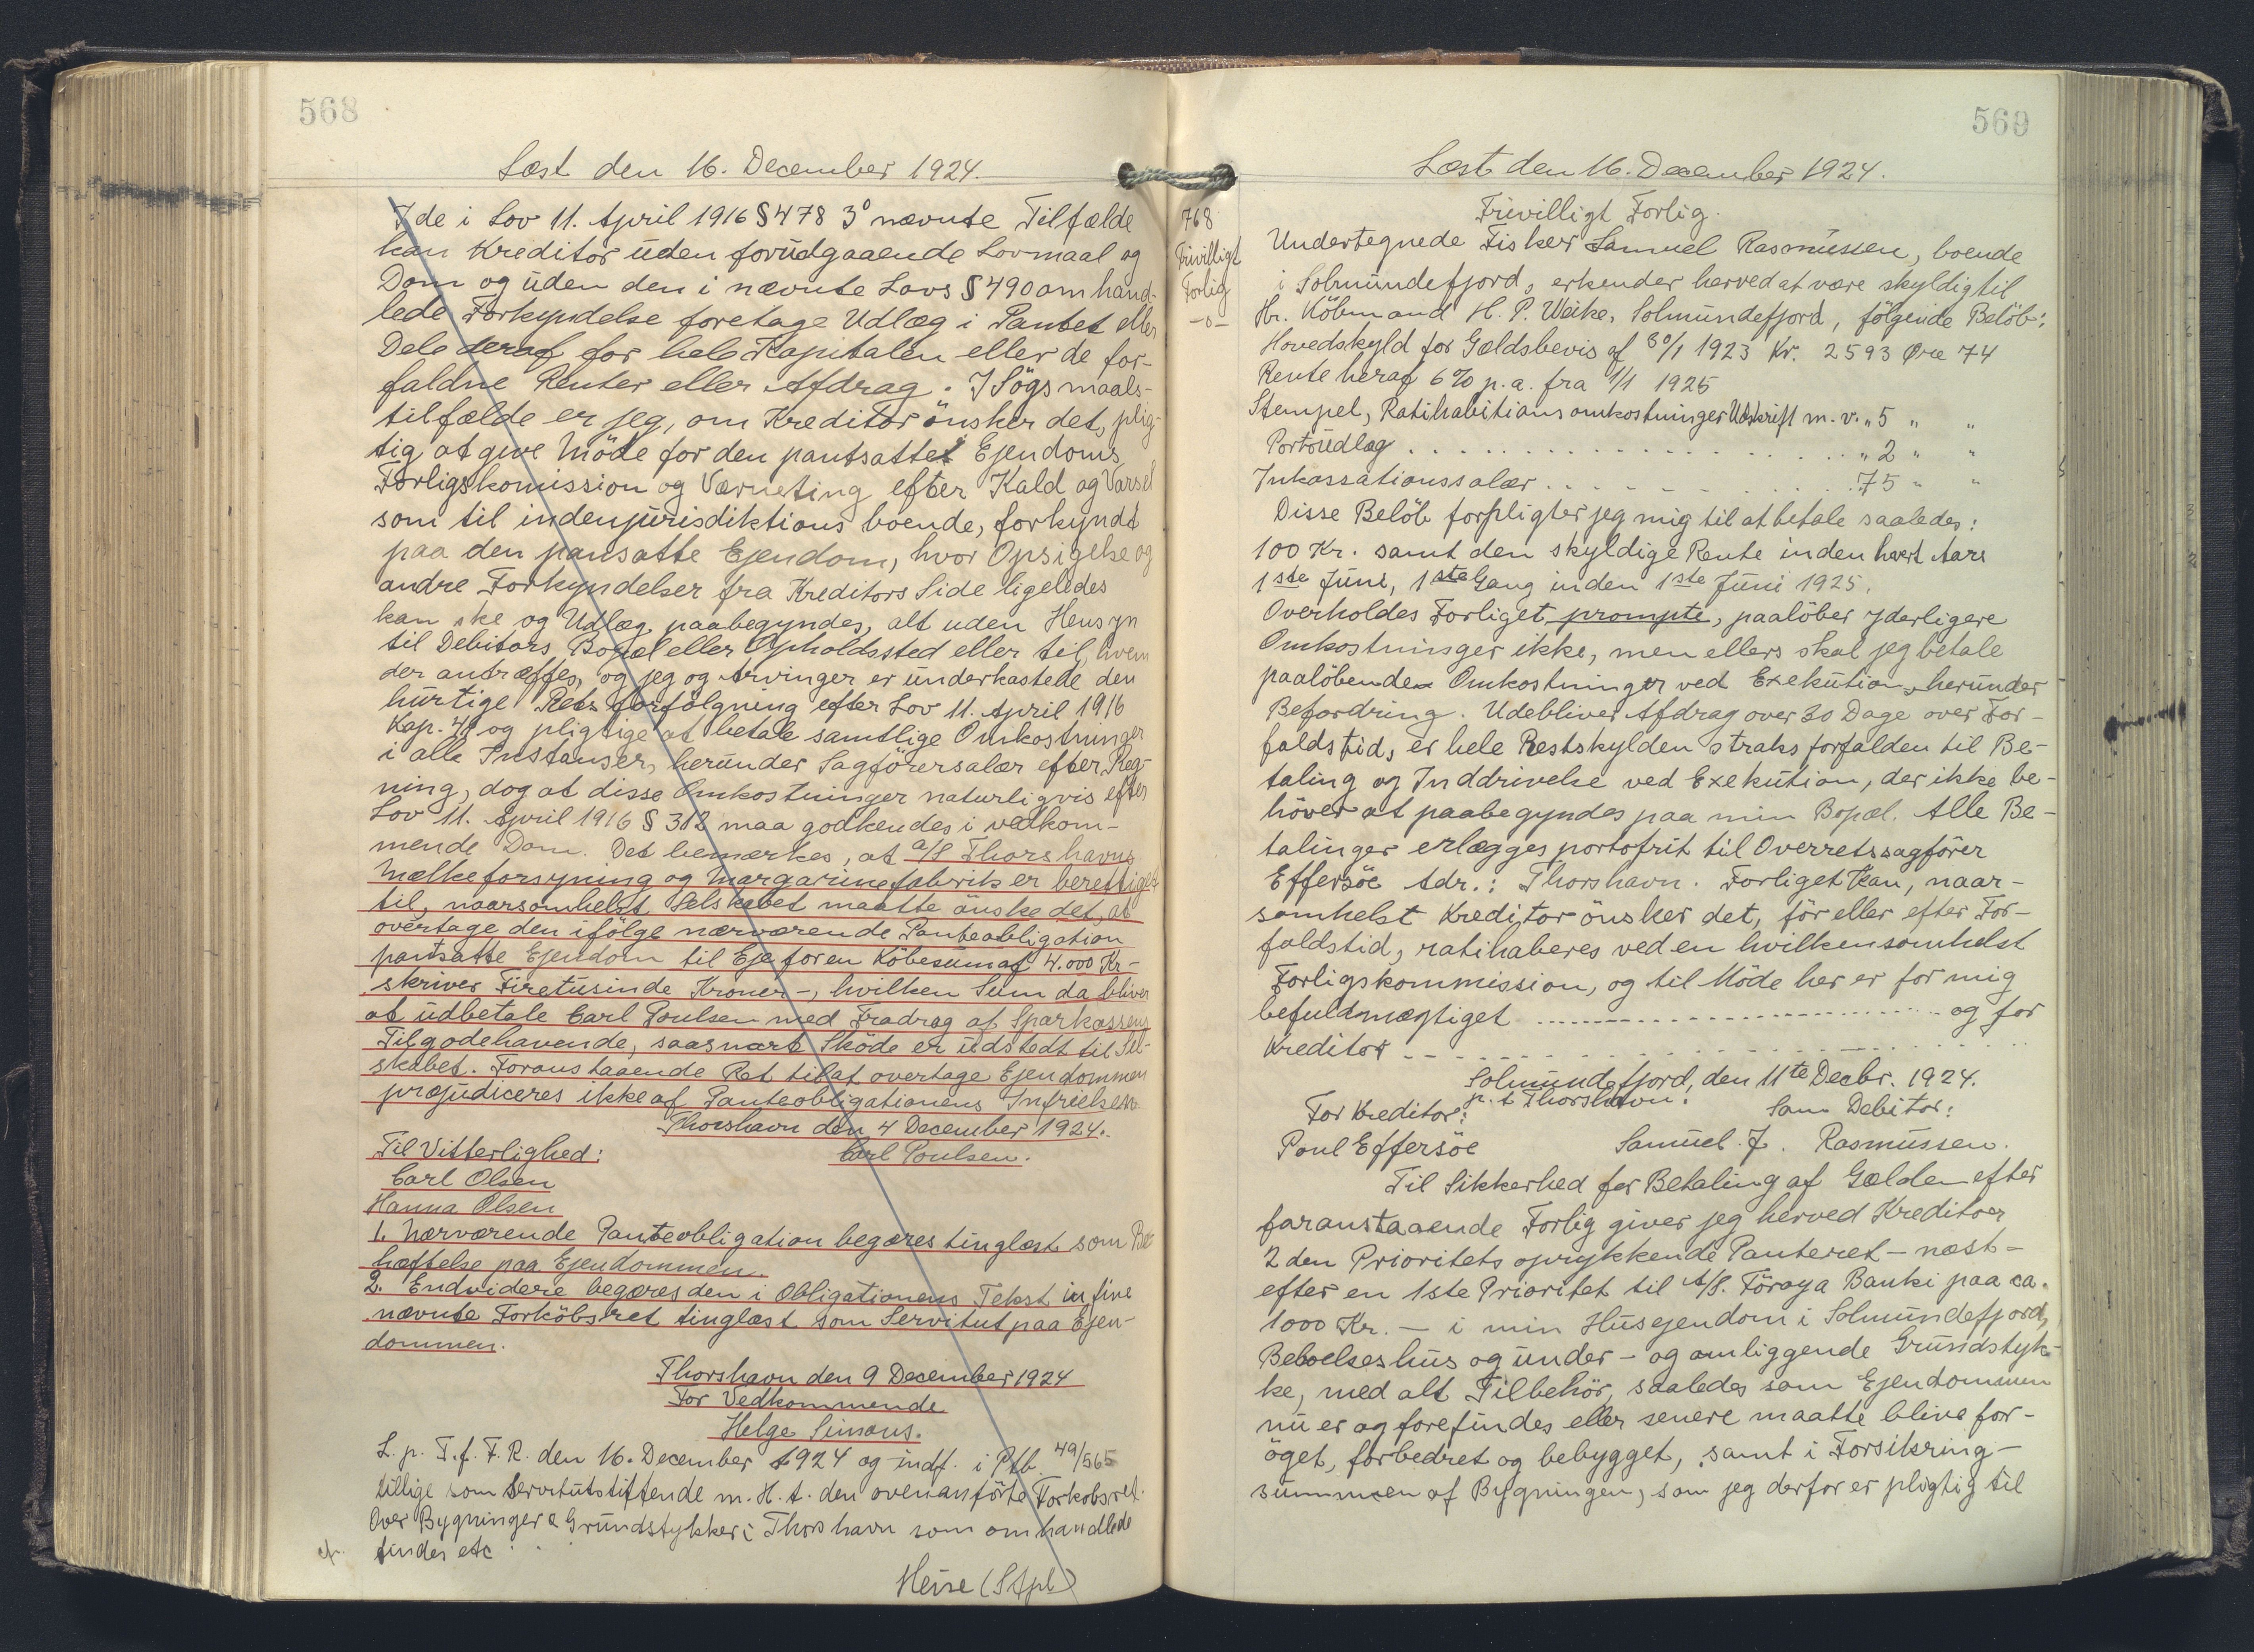 568
Læst den 16. December 1924.
I de i Lov 11. April 1916 § 478 3° nævnte Tilfælde
kan Kreditor uden forudgaaende Lovmaal og
Dom og uden den i nævnte Lovs § 490 omhand-
lede Forkyndelse foretage Udlæg i Pantet eller
Dele deraf for hele Kapitalen eller de for-
faldne Renter eller Afdrag. I Sögsmaals-
tilfælde er jeg, om Kreditor önsker det, plig-
tig at give Möde for den pantsattes Ejendoms
Forligskomission og Værneting efter Kald og Varsel
som til indenjurisdiktions boende, forkyndt
paa den pansatte Ejendom, hvor Opsigelse og
andre Forkyndelser fra Kreditors Side ligeledes
kan ske og Udlæg paabegyndes, alt uden Hensyn
til Debitors Bopæl eller Opholdssted eller til, hvem
der antræffes, og jeg og Arvinger er underkastede den
hurtige Retsforfölgning efter Lov 11. April 1916
Kap. 41 og pligtige at betale samtlige Omkostninger
i alle Instanser, herunder Sagförersalær efter Reg-
ning, dog at disse Omkostninger naturligvis efter
Lov 11. April 1916 § 312 maa godkendes i vedkom-
mende Dom. Det bemærkes, at A/S Thorshavns
Mælkeforsyning og Margarinefabrik er berettiget
til, naarsomhelst Selskabet maatte önske det, at
overtage den ifölge nærværende Panteobligation
pantsatte Ejendom til Eje for en Köbesum af 4.000 Kr-
skriver Firetusinde Kroner-, hvilken Sum da bliver
at udbetale Carl Poulsen med Fradrag af Sparkassens
Tilgodehavende, saasnart Sköde er udstedt til Sel-
skabet. Foranstaaende Ret til at overtage Ejendommen
præjudiceres ikke af Panteobligationens Indfrielsen
Thorshavn den 4 December 1924.
Til Vitterlighed: Carl Poulsen.
Carl Olsen
Hanna Olsen
1. Nærværende Panteobligation begæres tinglæst som Be-
hæftelse paa Ejendommen.
2. Endvidere begæres den i Obligationens Tekst in fine
nævnte Forköbsret tinglæst som Servitut paa Ejen-
dommen.
Thorshavn den 9 December 1924
For Vedkommende
Helge Simons.
L. p. T. f. F. R. den 16. December 1924 og indf. i Ptb. 49/565
tillige som Servitutstiftende m. H. t. den ovenanförte Forkobsret.
Over Bygninger & Grundstykker i Thorshavn som omhandlede
findes etc
Heise (Stpl)
569
Læst den 16. December 1924.
768
Frivilligt
Forlig
-o-
Frivilligt Forlig.
Undertegnede Fisker Samuel Rasmussen, boende
i Solmundefjord, erkender herved at være skyldig til
Hr. Köbmand H. P. Weihe, Solmundefjord, fölgende Belöb:
Hovedskyld for Gældsbevis af 30/1 1923 Kr. 2593 Øre 74
Rente heraf 6% p. a. fra 1/1 1925
Stempel, Ratihabitionsomkostninger Udskrift m. v. " 5 " "
Portoudlæg . . . . . . " 2 " "
Inkassationssalær . . . . . . 75 " "
Disse Belöb forpligter jeg mig til at betale saaledes:
100 Kr. samt den skyldige Rente inden hvert Aars
1ste Juni, 1ste Gang inden 1ste Juni 1925.
Overholdes Forliget prompte, paalöber yderligere
Omkostninger ikke, men ellers skal jeg betale
paalöbende Omkostninger ved Exekution, herunder
Befordring. Udebliver Afdrag over 30 Dage over For-
faldstid, er hele Restskylden straks forfalden til Be-
taling og Inddrivelse ved Exekution, der ikke be-
höver at paabegyndes paa min Bopæl. Alle Be-
talinger erlægges portofrit til Overretssagförer
Effersöe Adr.: Thorshavn. Forliget kan, naar-
somhelst Kreditor önsker det, för eller efter For-
faldstid, ratihaberes ved en hvilkensomhelst
Forligskommission, og til Möde her er for mig
befuldmægtiget . . . . . . og for
Kreditor . . . . . .
Solmundefjord, den 11te Decbr. 1924.
p. t Thorshavn.
For Kreditor: Som Debitor:
Poul Effersöe Samuel J. Rasmussen.
Til Sikkerhed for Betaling af Gælden efter
foranstaaende Forlig giver jeg herved Kreditor
2den Prioritets oprykkende Panteret - næst-
efter en 1ste Prioritet til A/S. Föroya Banki paa ca.
1000 Kr. - i min Husejendom i Solmundefjord,
Beboelseshus og under- og omliggende Grundstyk-
ke, med alt Tilbehör, saaledes som Ejendommen
nu er og forefindes eller senere maatte blive for-
öget, forbedret og bebygget, samt i Forsikring-
summen af Bygningen, som jeg derfor er pligtig til